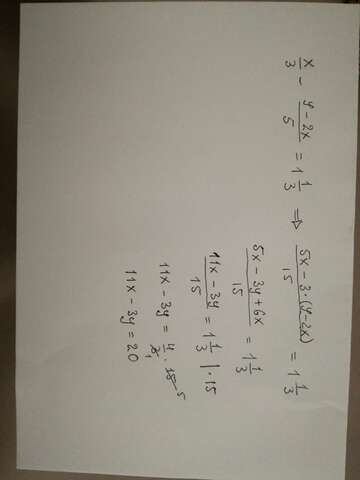 x/3 - (y-2x)/5 = 1 1/3 ⇒ (5x-3·(y-2x))/15 = 1 1/3
(5x-3y+6x)/15 = 1 1/3
(11x-3y)/15 = 1 1/3 |·15
11x-3y = 4/3₁ · 15⁵
11x-3y = 20